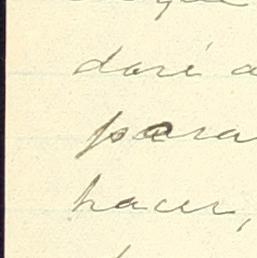 daré a
para
hacer,